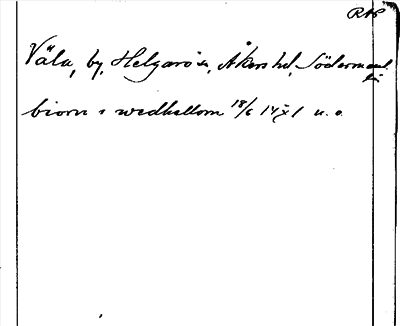 RAP
Väla, by, Helgarö sn, Åkers hd, Södermanl.
biorn i wedhellom 18/6 14 1 u. o.